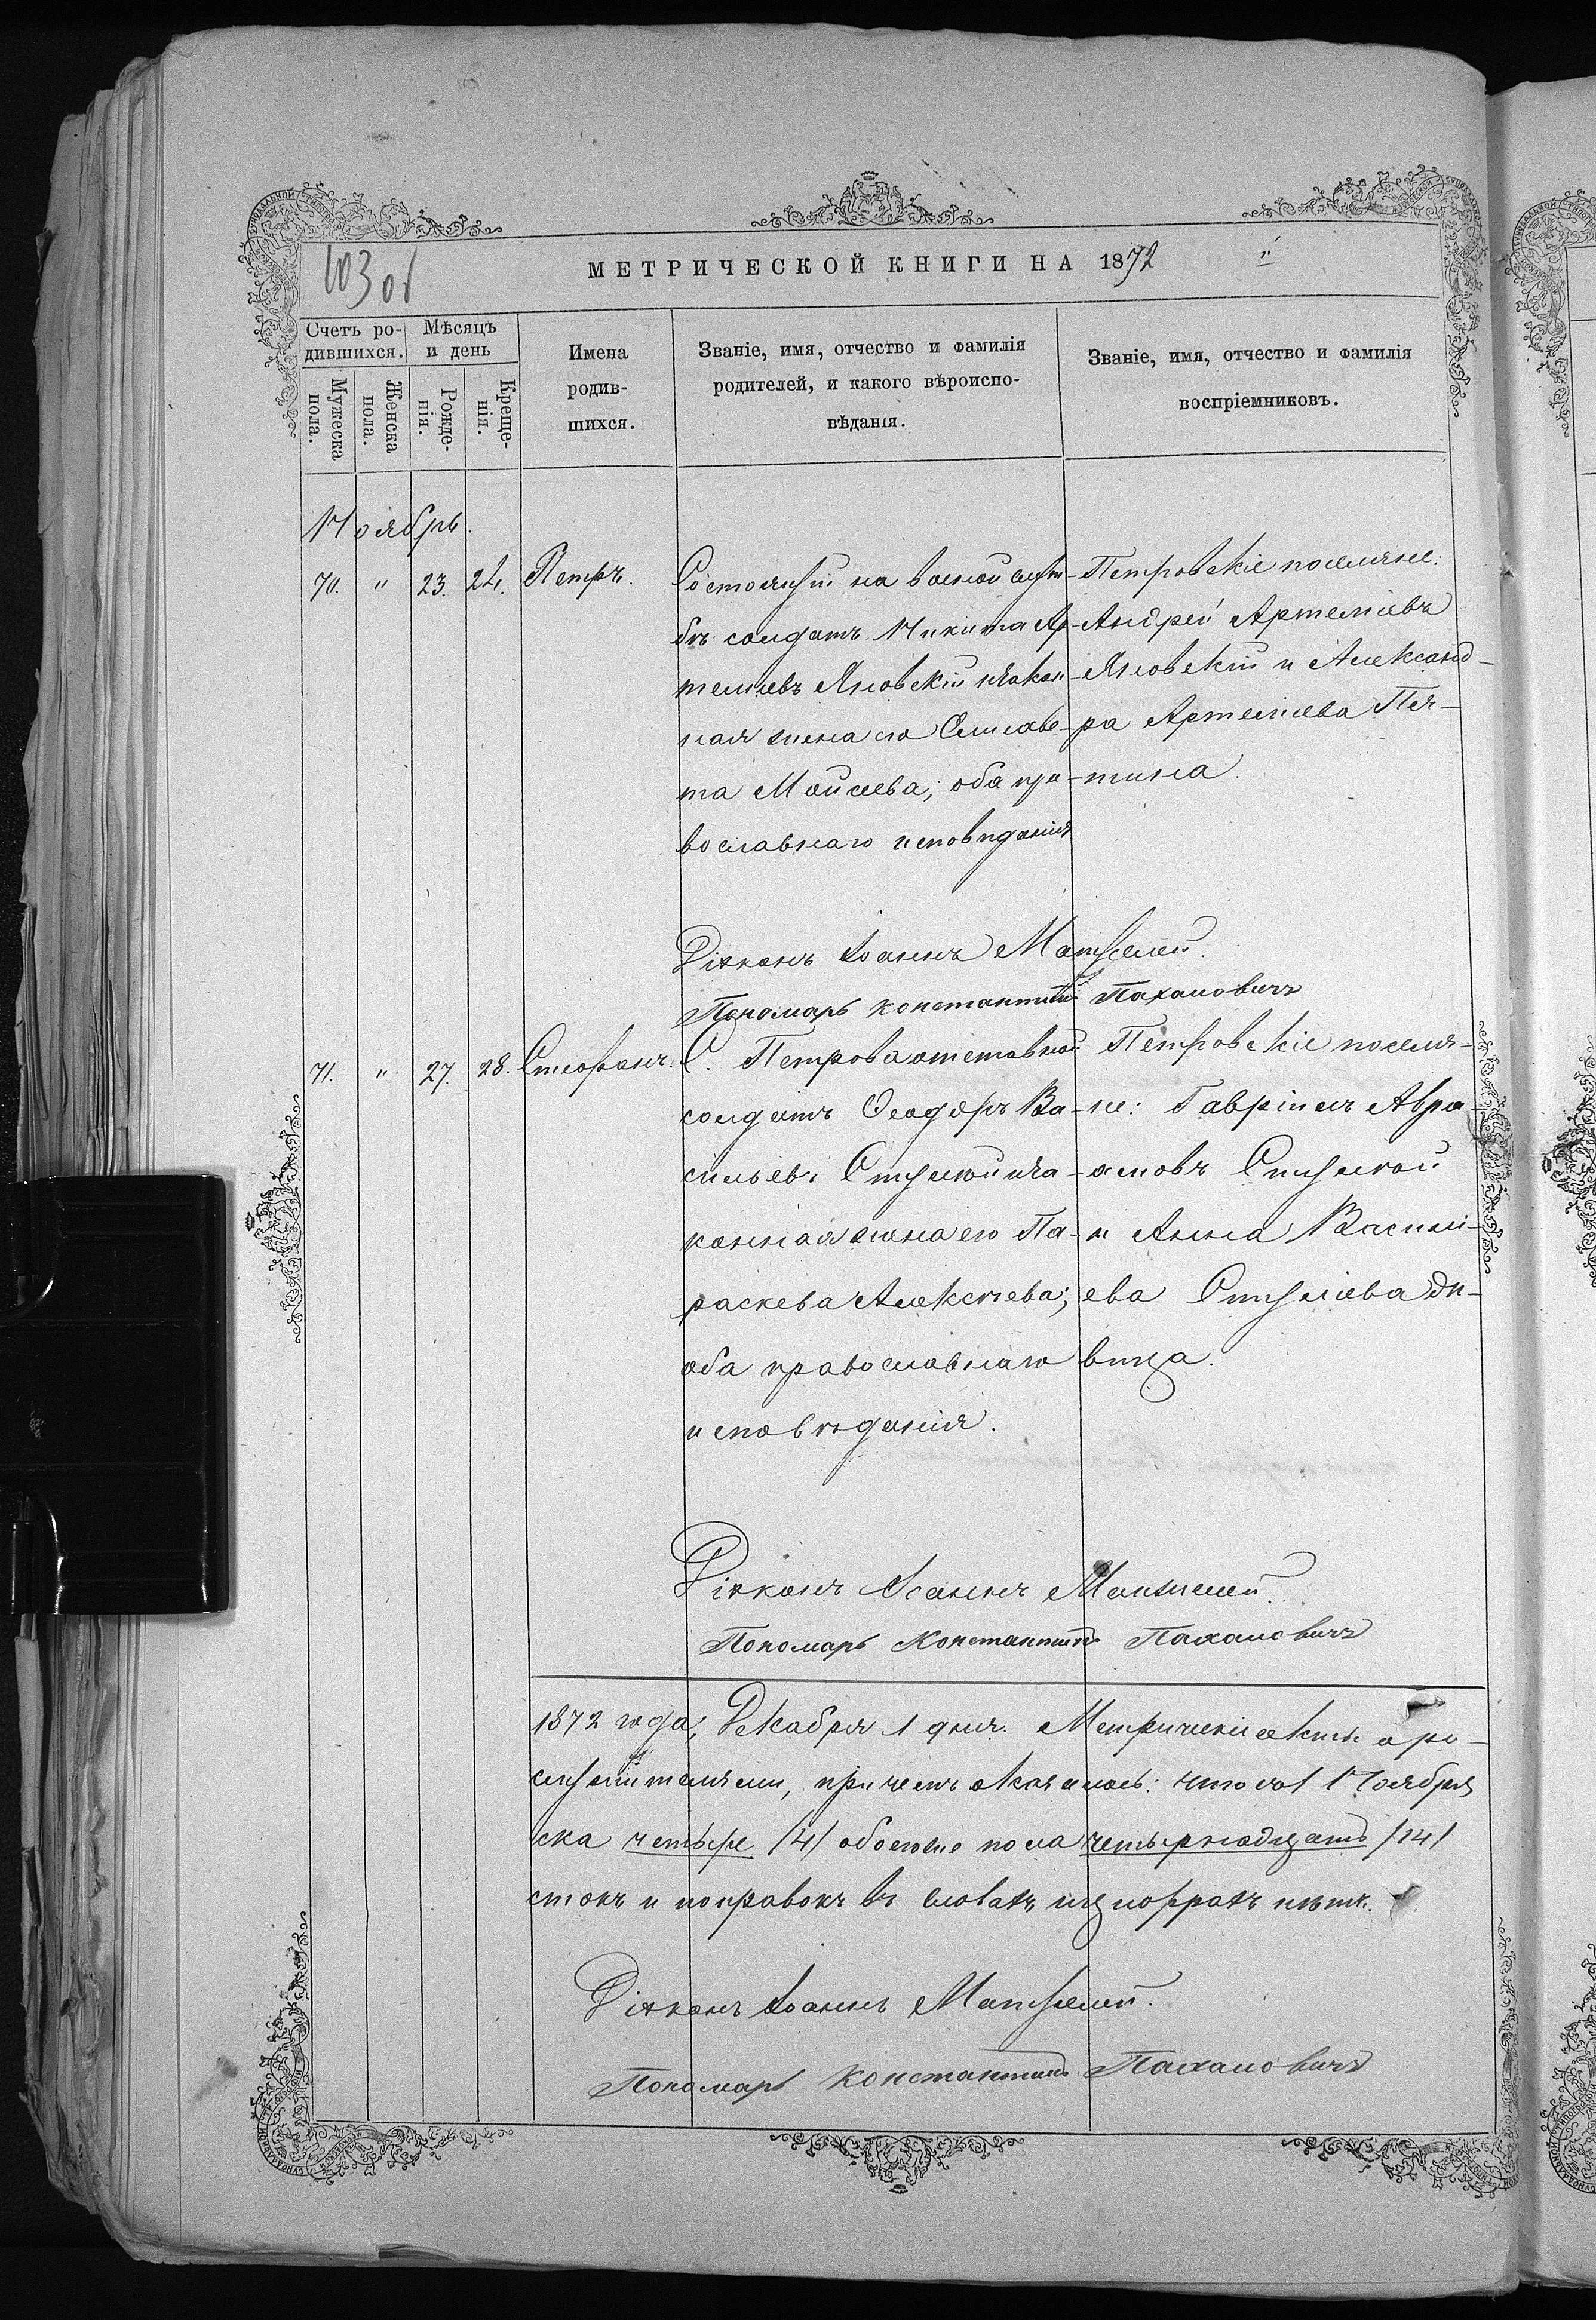 103 об
МЕТРИЧЕСКОЙ КНИГИ НА 1872
Счетъ ро-
дившихся.
Мѣсяцъ
и день
Мужеска
пола.
Женска
пола.
Рожде-
нія.
Креще-
нія.
Имена
родив-
шихся.
Званіе, имя, отчество и фамилія
родителей, и какого вѣроиспо-
вѣданія.
Званіе, имя, отчество и фамилія
воспріемниковъ.
Ноябрь.
70. " 23. 24. Петръ.
Состоящій на
бѣ солдатъ Никита Ар-
теміевъ Яловскій и
жена его Елисаве-
та Мойсеева; оба пра-
вославнаго исповѣданія
Петровскіе поселяне:
Андрей Артеміевъ
Яловскій и Александ-
ра Артеміева Пя-
тина.
Діяконъ Іоаннъ
Пономарь Константинъ Пахаловичъ
71. " 27. 28. Стефанъ.
С. Петрова отставной
солдатъ Ѳеодоръ Ва-
сильевъ и за-
конная жена его Па-
раскева Алексѣева;
оба православнаго
исповѣданія.
Петровскіе поселя-
не: Гавріилъ Авра-
амовъ
и Анна Василі-
ева дѣ-
вица.
Діяконъ Іоаннъ
Пономарь Константинъ Пахаловичъ
1872 года, Декабря 1 дня. акты о ро-
причемъ оказалось: что Ноября
ска четыре /4/ обоего пола четырнадцать /14/
стокъ и поправокъ въ словахъ и цифрахъ нѣтъ.
Діяконъ Іоаннъ
Пономарь Константинъ Пахаловичъ